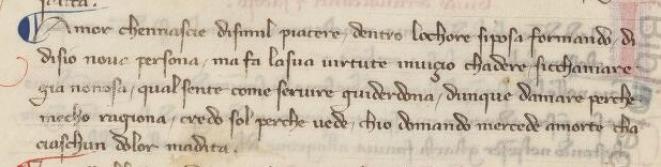 Amor chennascie disimil piacere, dentro lochore siposa formando, di
disio nova persona, ma fa lasua virtute invizio chadere siccħamare
gia nonosa, qual sente come servire guiderdona, dunque damare perche
mecho ragiona, credo sol perche vede, chio domando mercede amorte cha
ciaschun dolor madita.